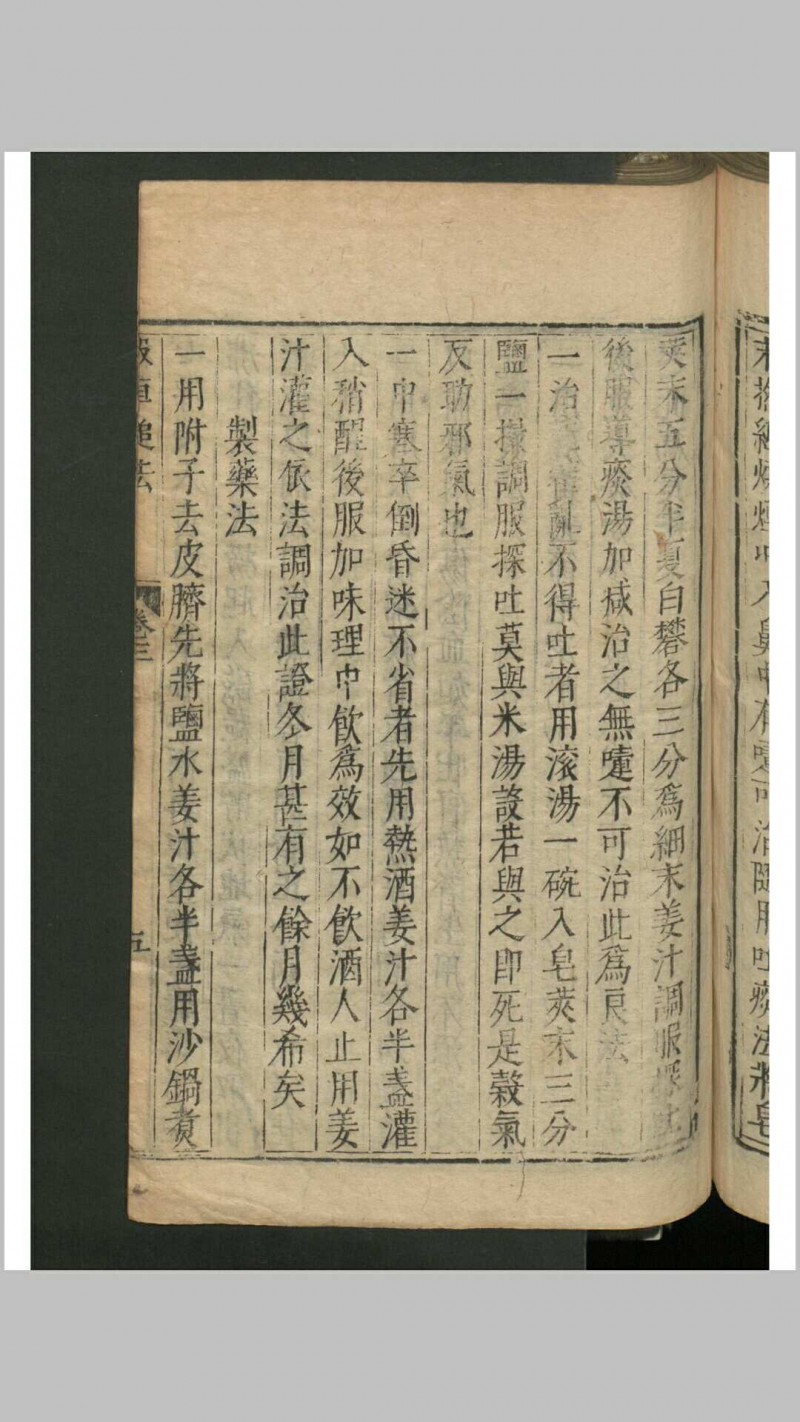 末
烟吹入鼻中有嚏可治隨用吐痰法將皂
莢末五分半夏白礬各三分爲細末姜汁調服探吐
後服導痰湯加減治之無嚏不可治此爲良法
一治霍亂不得吐者用滚湯一碗入皂莢末三分
鹽一撮調服探吐莫與米湯設若與之即死是穀氣
反助邪氣也
一中寒卒倒昏迷不省者先用熱酒姜汁各半盞灌
入稍醒後服加味理中飲爲效如不飲酒人止用姜
汁灌之依法調治此證冬月甚有之餘月幾希矣
製藥法
一用附子去皮臍先將鹽水姜汁各半盞用沙鍋煑
殺車槌法
卷三
五